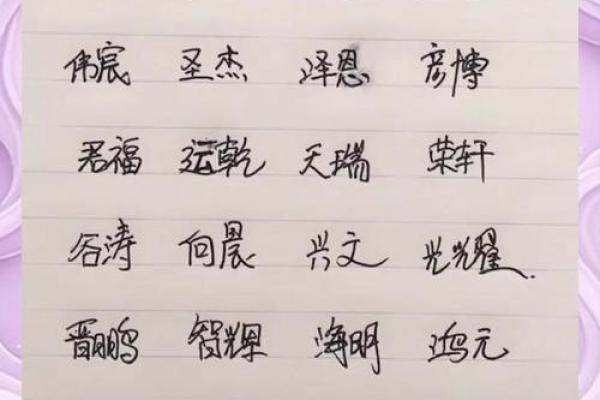 伟宸 圣杰 泽恩 彦博
君福 运乾 天瑞 荣轩
谷涛 向晨 兴文 光耀
晋鹏 智辉 海明 鸿元